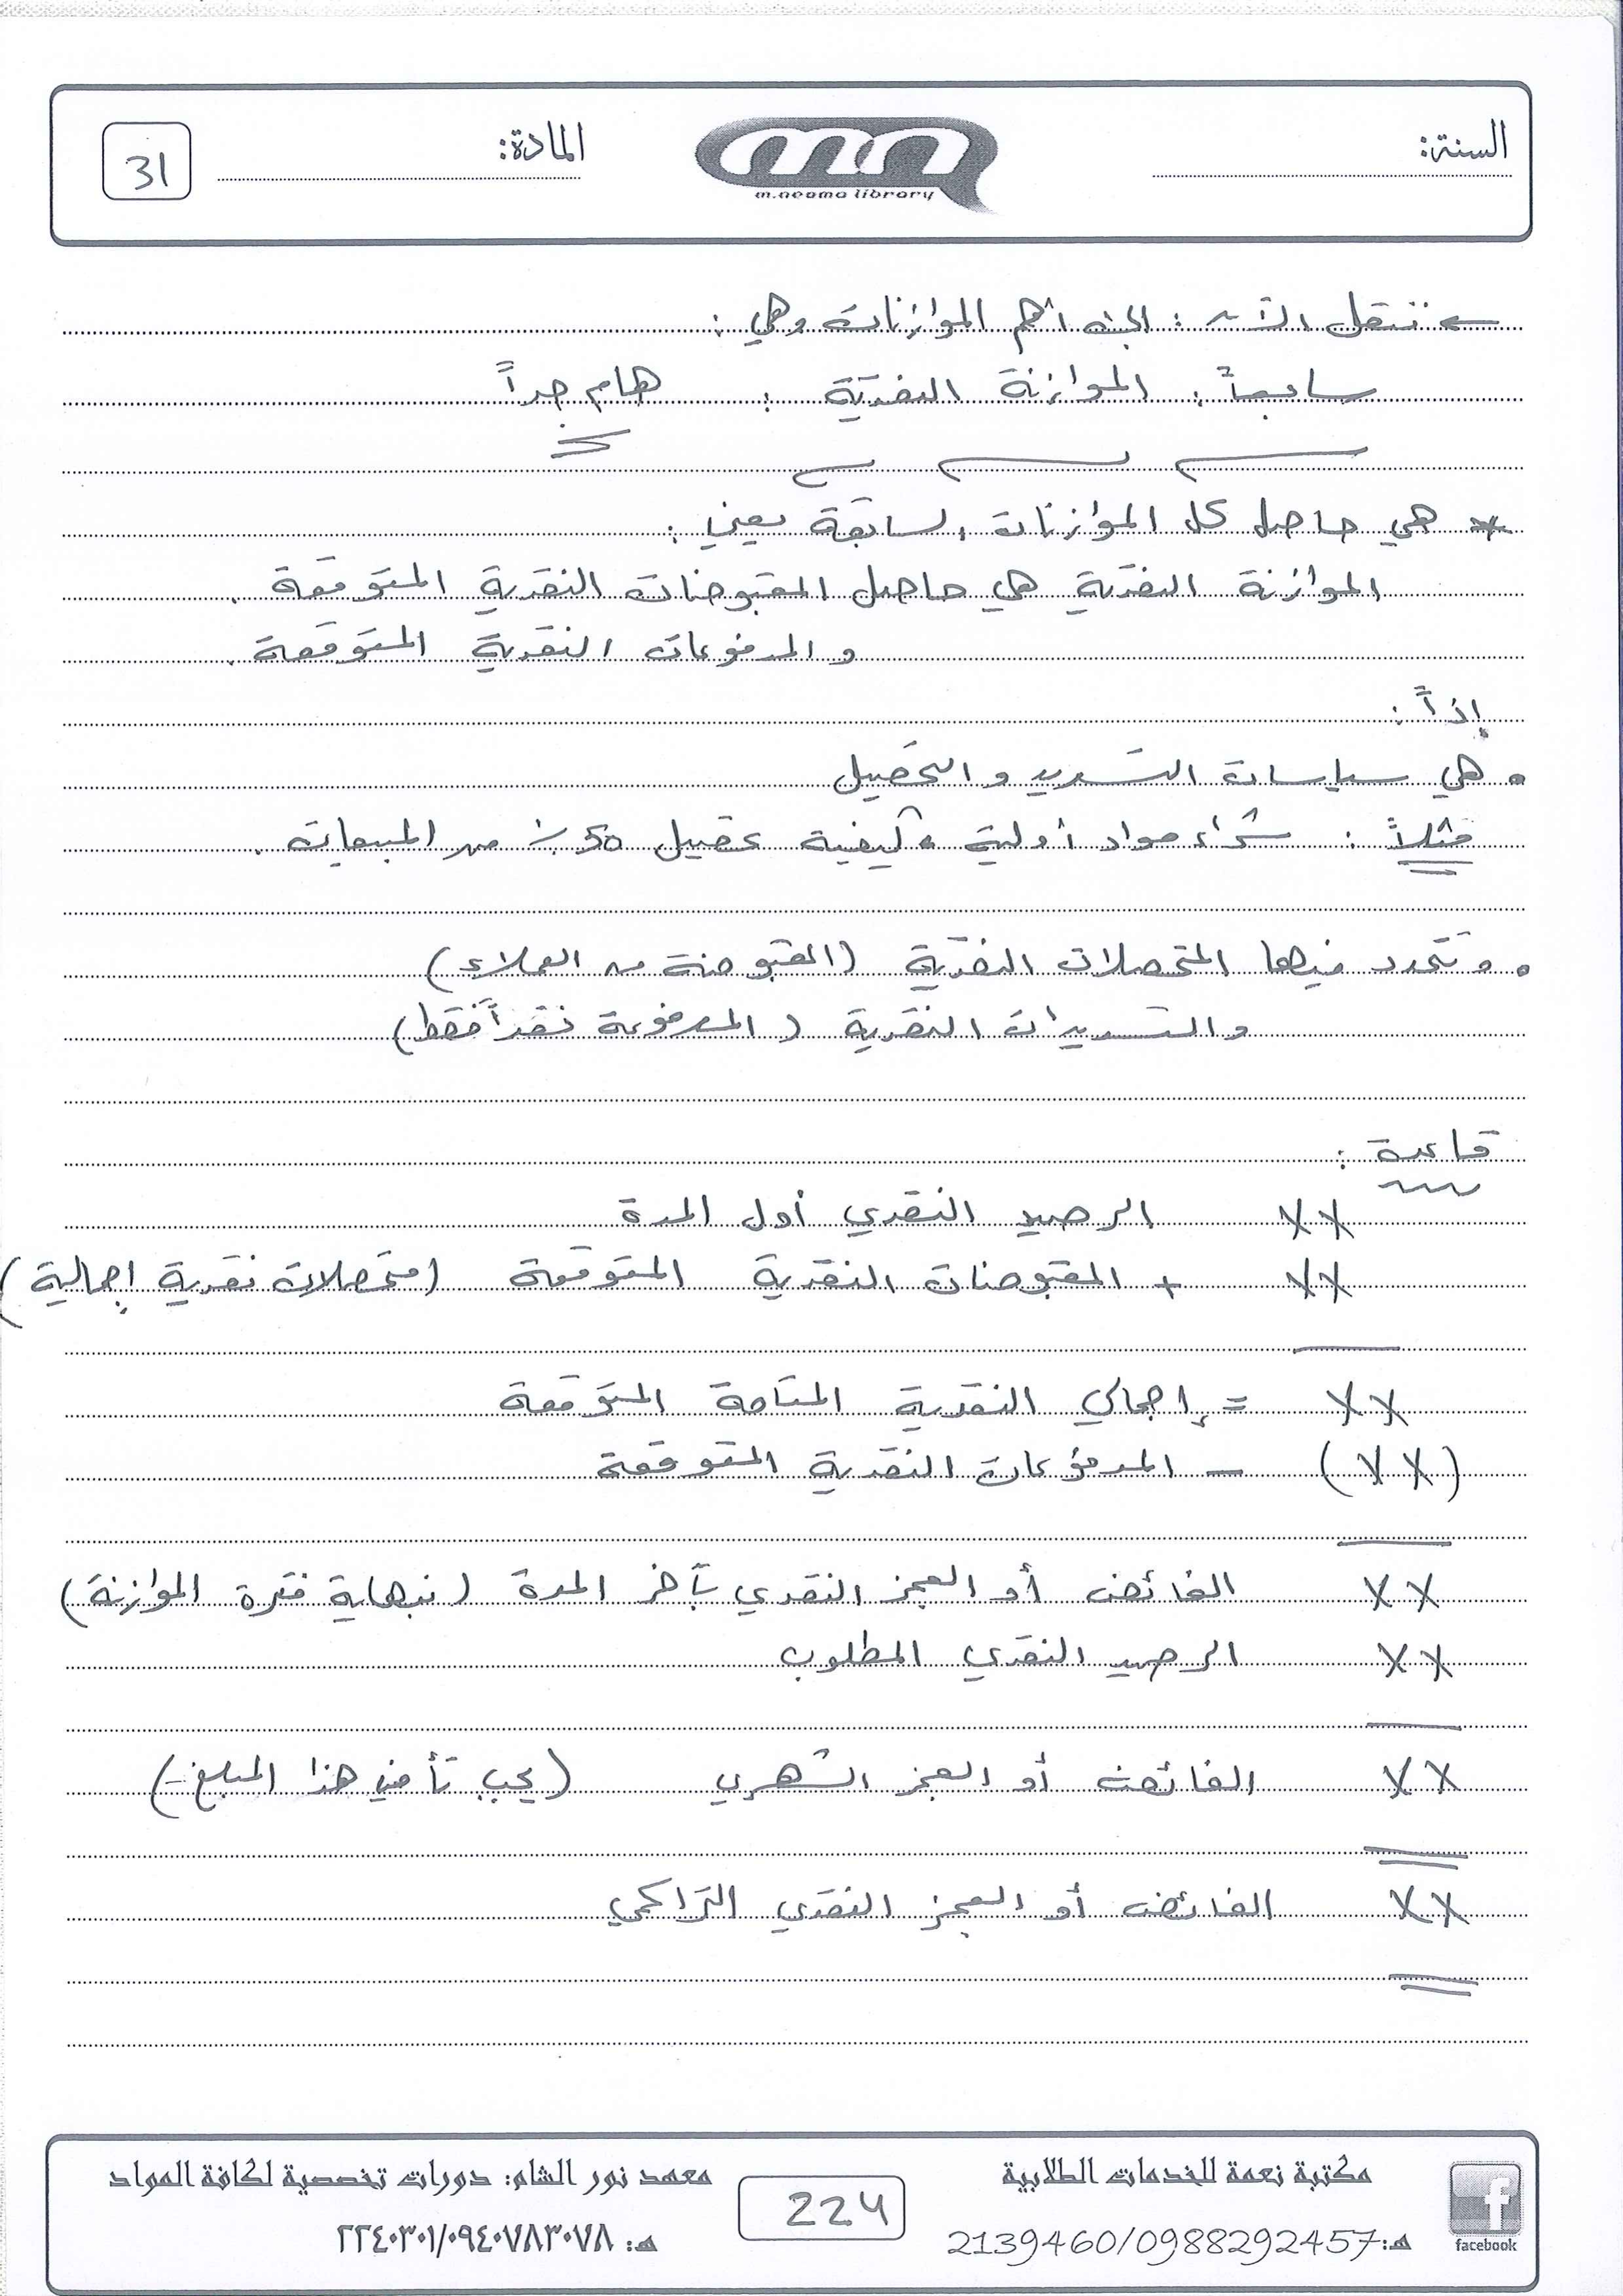 السنة:
المادة:
31
m.neoma library
ننتقل الآن : إلى أهم الموازنات وهي :
سابعاً : الموازنة النقدية : هام جداً
* هي حاصل كل الموازنات السابقة يعني :
الموازنة النقدية هي حاصل المقبوضات النقدية المتوقعة .
و المدفوعات النقدية المتوقعة .
إذاً :
• هي سياسات التسديد و التحصيل
مثلاً : شراء مواد أولية • كيفية تحصيل 50 % من المبيعات .
• و تتحدد فيها المتحصلات النقدية ( المقبوضة من العملاء )
و التسديدات النقدية ( المدفوعة نقداً فقط )
قاعدة :
×× الرصيد النقدي أول المدة
×× + المقبوضات النقدية المتوقعة ( متحصلات نقدية إجمالية )
×× = إجمالي النقدية المتاحة المتوقعة
(××) – المدفوعات النقدية المتوقعة
×× الفائض أو العجز النقدي بآخر المدة ( نهاية فترة الموازنة )
×× الرصيد النقدي المطلوب
×× الفائض أو العجز الشهري ( يجب تأمين هذا المبلغ )
×× الفائض أو العجز النقدي التراكمي
مكتبة نعمة للخدمات الطلابية
هـ: 2139460/0988292457
facebook
224
معهد نور الشام: دورات تخصصية لكافة المواد
هـ: ٢٢٤٠٣٠١/٠٩٤٠٧٨٣٠٧٨